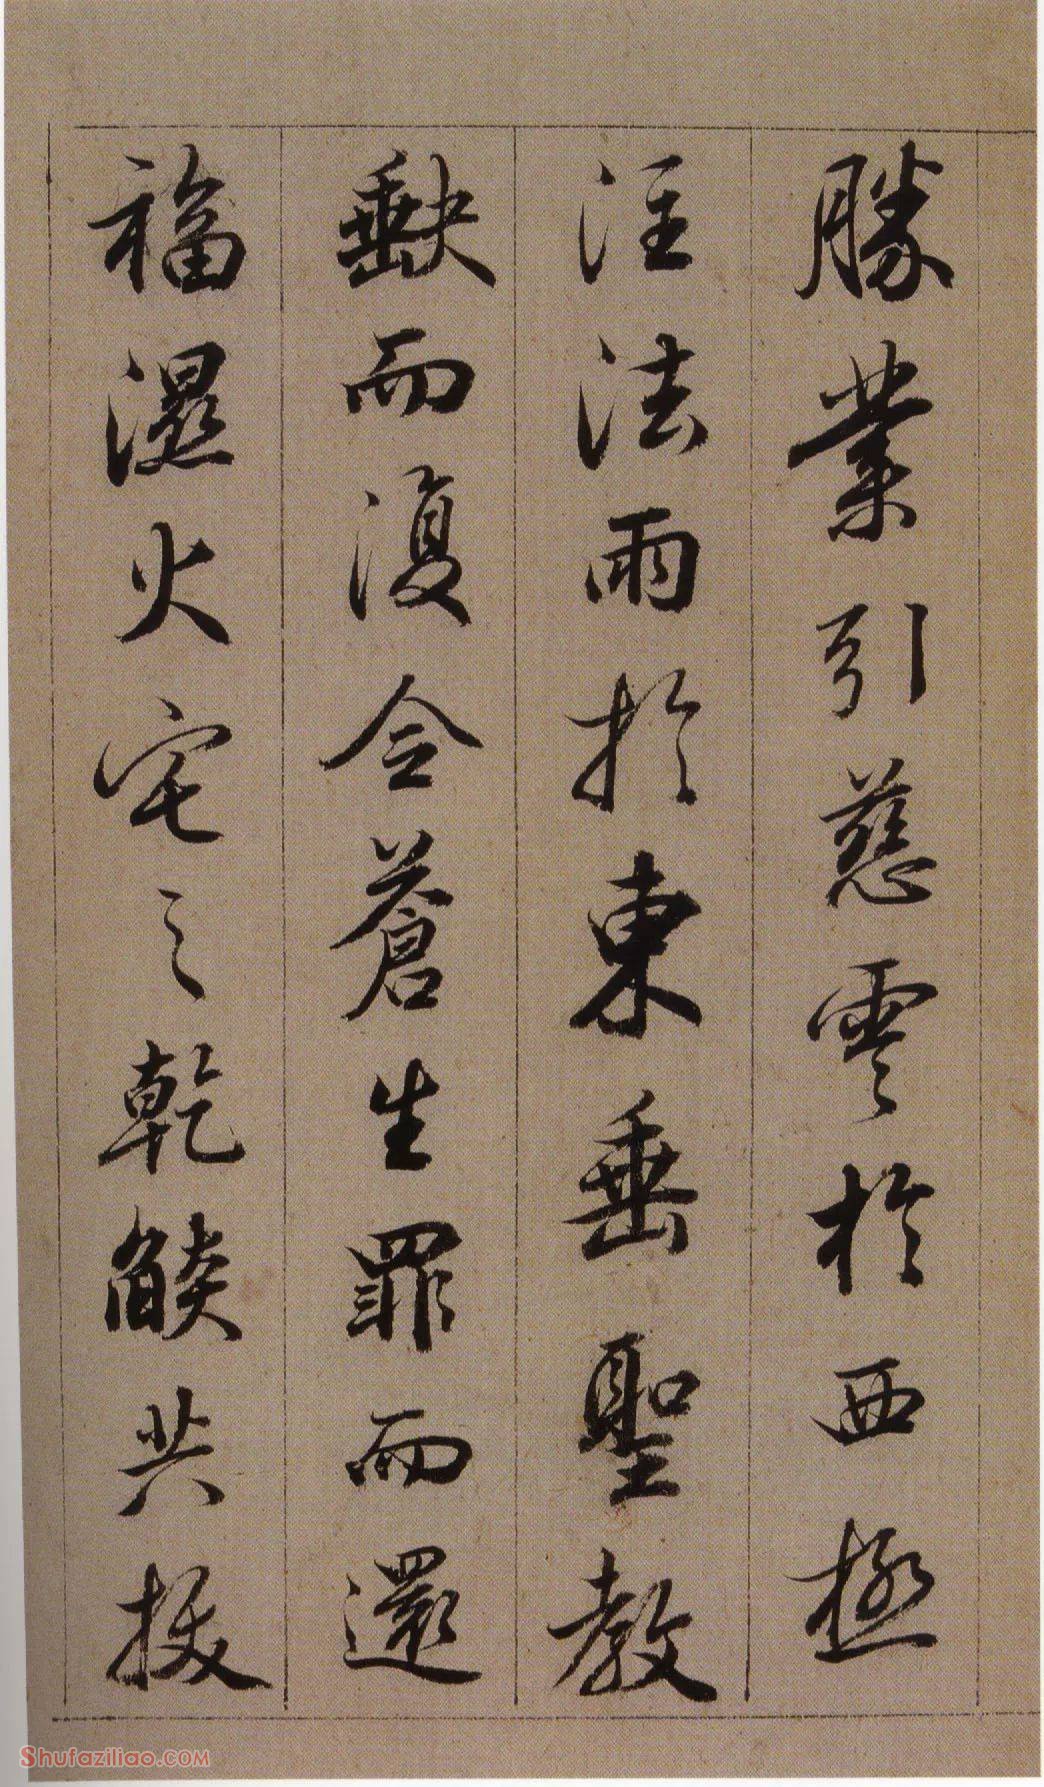 勝業引慈雲於西極
注法雨於東垂聖教
缺而復令蒼生罪而還
福濕火宅之乾燄共拔
Shufaziliao.COM